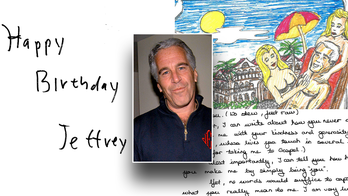 Happy
Birthday
Jeffrey
just raw)
I can write about how you never
me with your kindness and generosity
whose lives you touch in several
for taking me to
importantly, I can tell you how
you make me by simply being you".
Yet, no words would suffice to
what you really mean to me. I am very